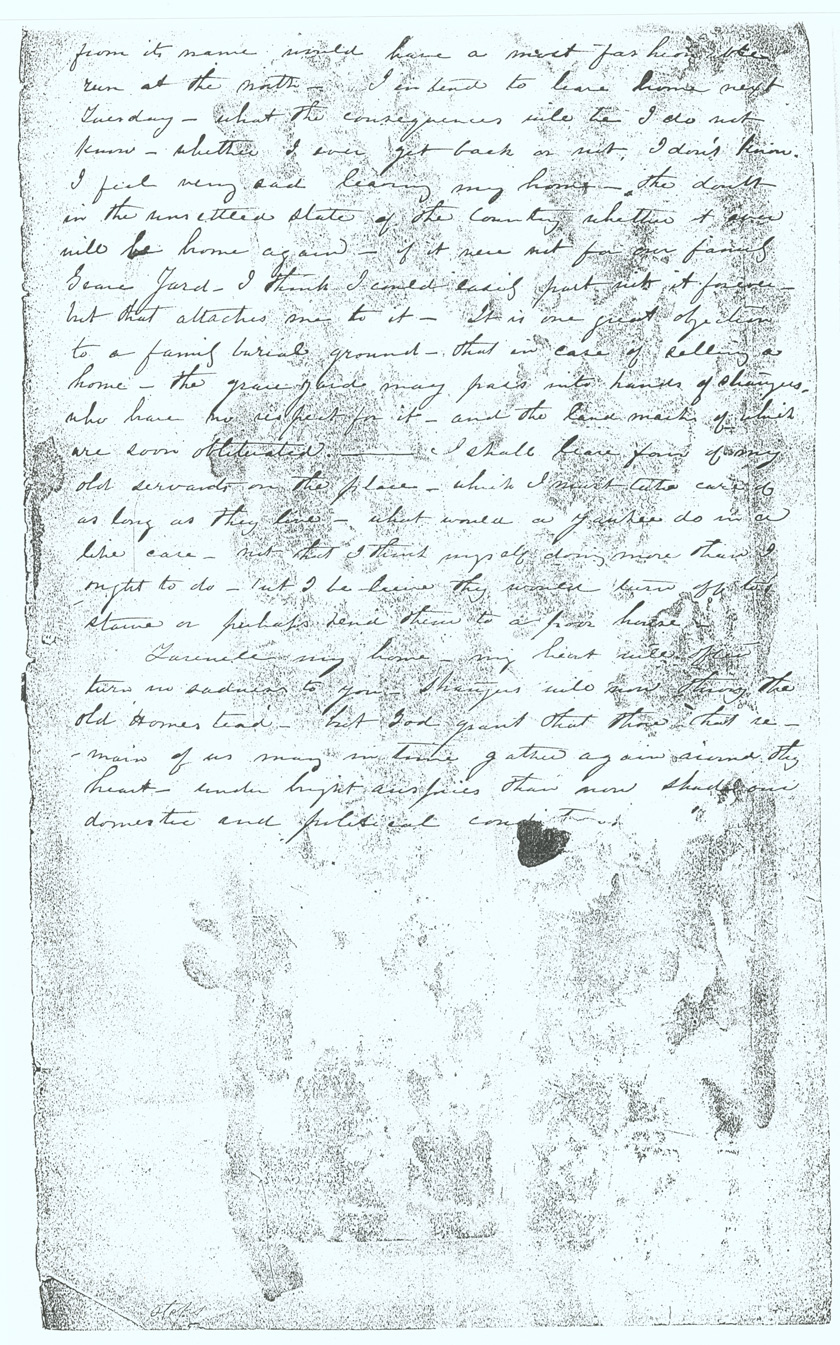 from its name would have a most fashionable
run at the north - I intend to leave home next
Tuesday - what the consequences will be I do not
know - whether I ever get back or not, I don't know.
I feel very sad leaving my home - the doubt
in the unsettled state of the Country whether I ever
will be home again - if it were not for our family
Grave Yard - I think I could easily part with it forever -
but that attaches me to it - It is one great objection
to a family burial ground - that in case of selling a
home - the grave yard may pass into hands of strangers,
who have no respect for it - and the land marks of which
are soon obliterated. - I shall leave four of my
old servants on the place - which I must take care of
as long as they live - what would a Yankee do in a
like case - not that I think myself doing more than I
ought to do - but I believe they would turn off to
starve or perhaps send them to a poor house -
Farewell my home - my heart will often
turn in sadness to you - Strangers will now throng the
old Homestead - but God grant that those that re-
-main of us may in time gather again around thy
heart - under bright auspices than now shadows our
domestic and political